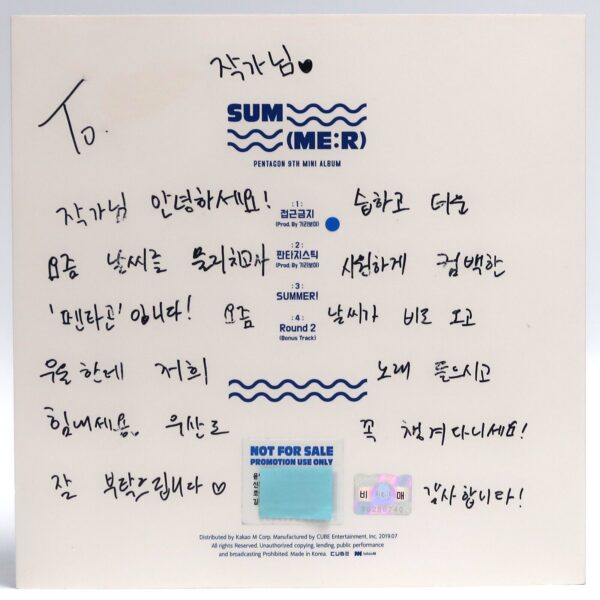 작가님♥
To.
SUM
(ME:R)
PENTAGON 9TH MINI ALBUM
작가님 안녕하세요! 습하고 더운
:1:
접근금지
(Prod. By 기리보이)
요즘 날씨를 물리치고자 시원하게 컴백한
:2:
판타지스틱
(Prod. By 기리보이)
:3:
SUMMER!
'펜타곤'입니다! 요즘 날씨가 비도 오고
:4:
Round 2
(Bonus Track)
우울한데 저희 노래 들으시고
힘내세요. 우산도 꼭 챙겨다니세요!
NOT FOR SALE
PROMOTION USE ONLY
비 매
잘 부탁드립니다♡ 감사합니다!
Distributed by Kakao M Corp. Manufactured by CUBE Entertainment, Inc. 2019.07
All rights Reserved. Unauthorized copying, lending, public performance
and broadcasting Prohibited. Made in Korea. CUBE kakaoM